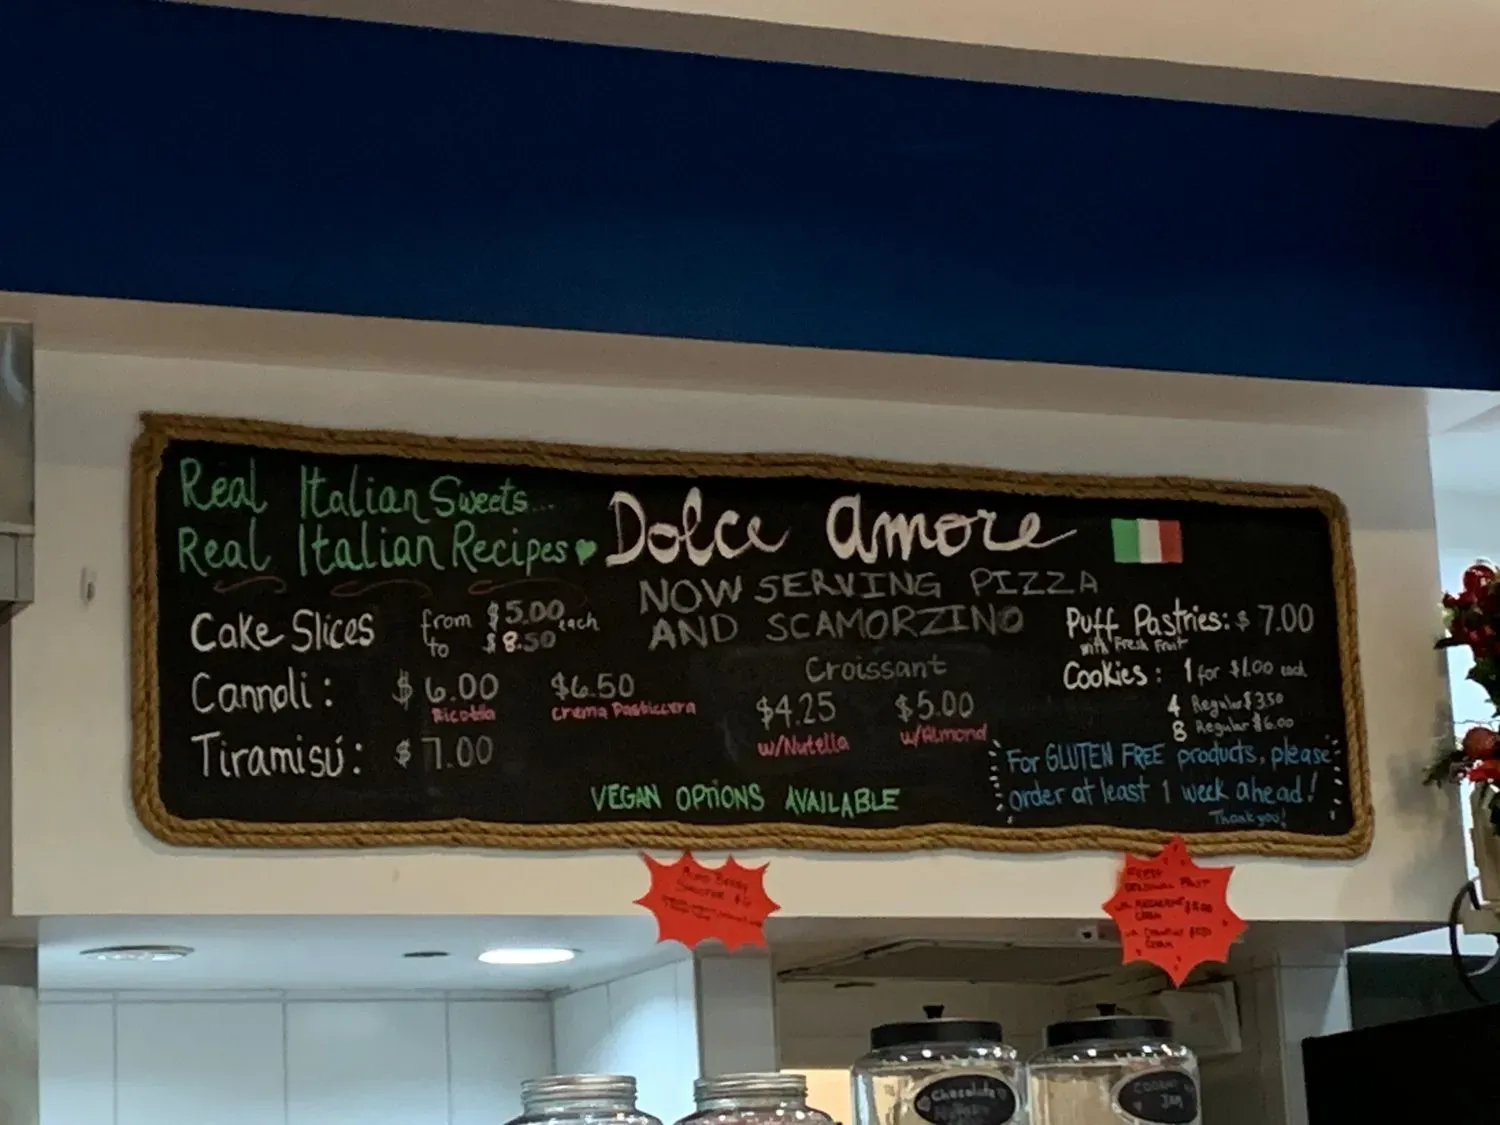 Real Italian Sweets...
Real Italian Recipes
Dolce Amore
NOW SERVING PIZZA
AND SCAMORZINO
Cake Slices from $5.00 each
to $8.50
Cannoli: $6.00 $6.50
Ricotta Crema Pasticcera
Tiramisú: $7.00
Croissant
$4.25 $5.00
w/Nutella w/Almond
VEGAN OPTIONS AVAILABLE
Puff Pastries: $7.00
with Fresh Fruit
Cookies: 1 for $1.00 each
4 Regular $3.50
8 Regular $6.00
For GLUTEN FREE products, please
order at least 1 week ahead!
Thank you!
Berry
FRESH
Chocolate
JAM